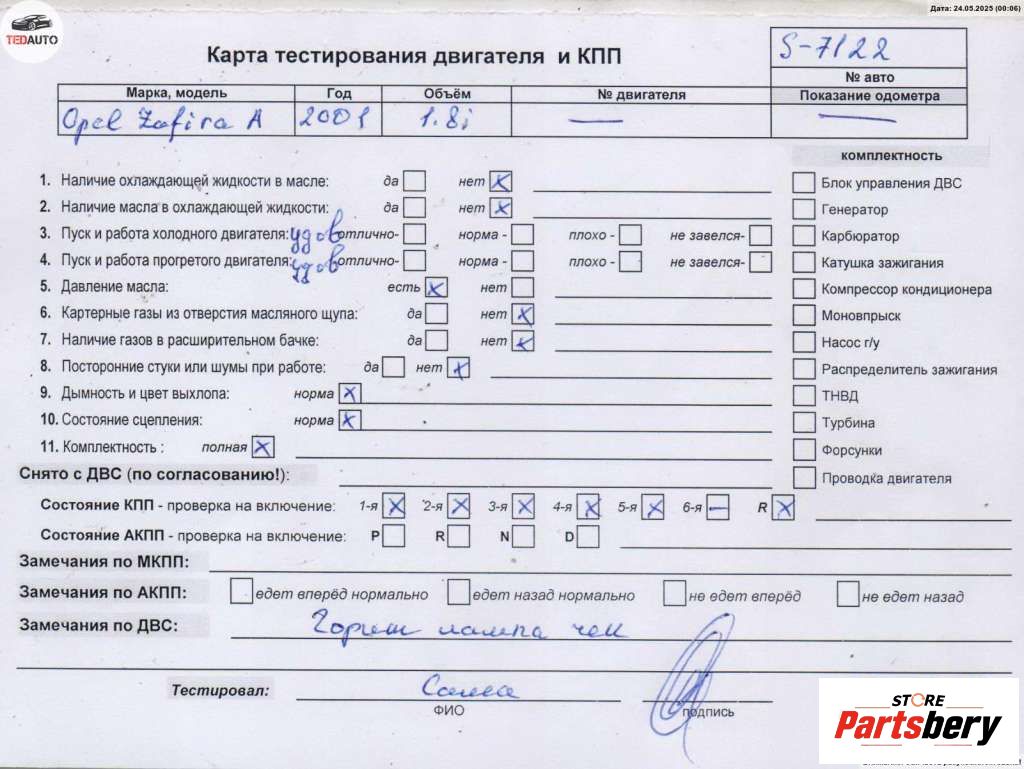 Дата: 24.05.2025 (00:06)
TEDAUTO
Карта тестирования двигателя и КПП
S-7122
№ авто
Марка, модель Год Объём № двигателя Показание одометра
Opel Zafira A 2001 1.8i — —
комплектность
1. Наличие охлаждающей жидкости в масле: да нет x
2. Наличие масла в охлаждающей жидкости: да нет x
3. Пуск и работа холодного двигателя: удов отлично- норма - плохо - не завелся-
4. Пуск и работа прогретого двигателя: удов отлично- норма - плохо - не завелся-
5. Давление масла: есть x нет
6. Картерные газы из отверстия масляного щупа: да нет x
7. Наличие газов в расширительном бачке: да нет x
8. Посторонние стуки или шумы при работе: да нет x
9. Дымность и цвет выхлопа: норма x
10. Состояние сцепления: норма x
11. Комплектность : полная x
Блок управления ДВС
Генератор
Карбюратор
Катушка зажигания
Компрессор кондиционера
Моновпрыск
Насос г/у
Распределитель зажигания
ТНВД
Турбина
Форсунки
Проводка двигателя
Снято с ДВС (по согласованию!):
Состояние КПП - проверка на включение: 1-я x 2-я x 3-я x 4-я x 5-я x 6-я — R x
Состояние АКПП - проверка на включение: P R N D
Замечания по МКПП:
Замечания по АКПП: едет вперёд нормально едет назад нормально не едет вперёд не едет назад
Замечания по ДВС: Горит лампа чек
Тестировал:
ФИО подпись
STORE
Partsbery